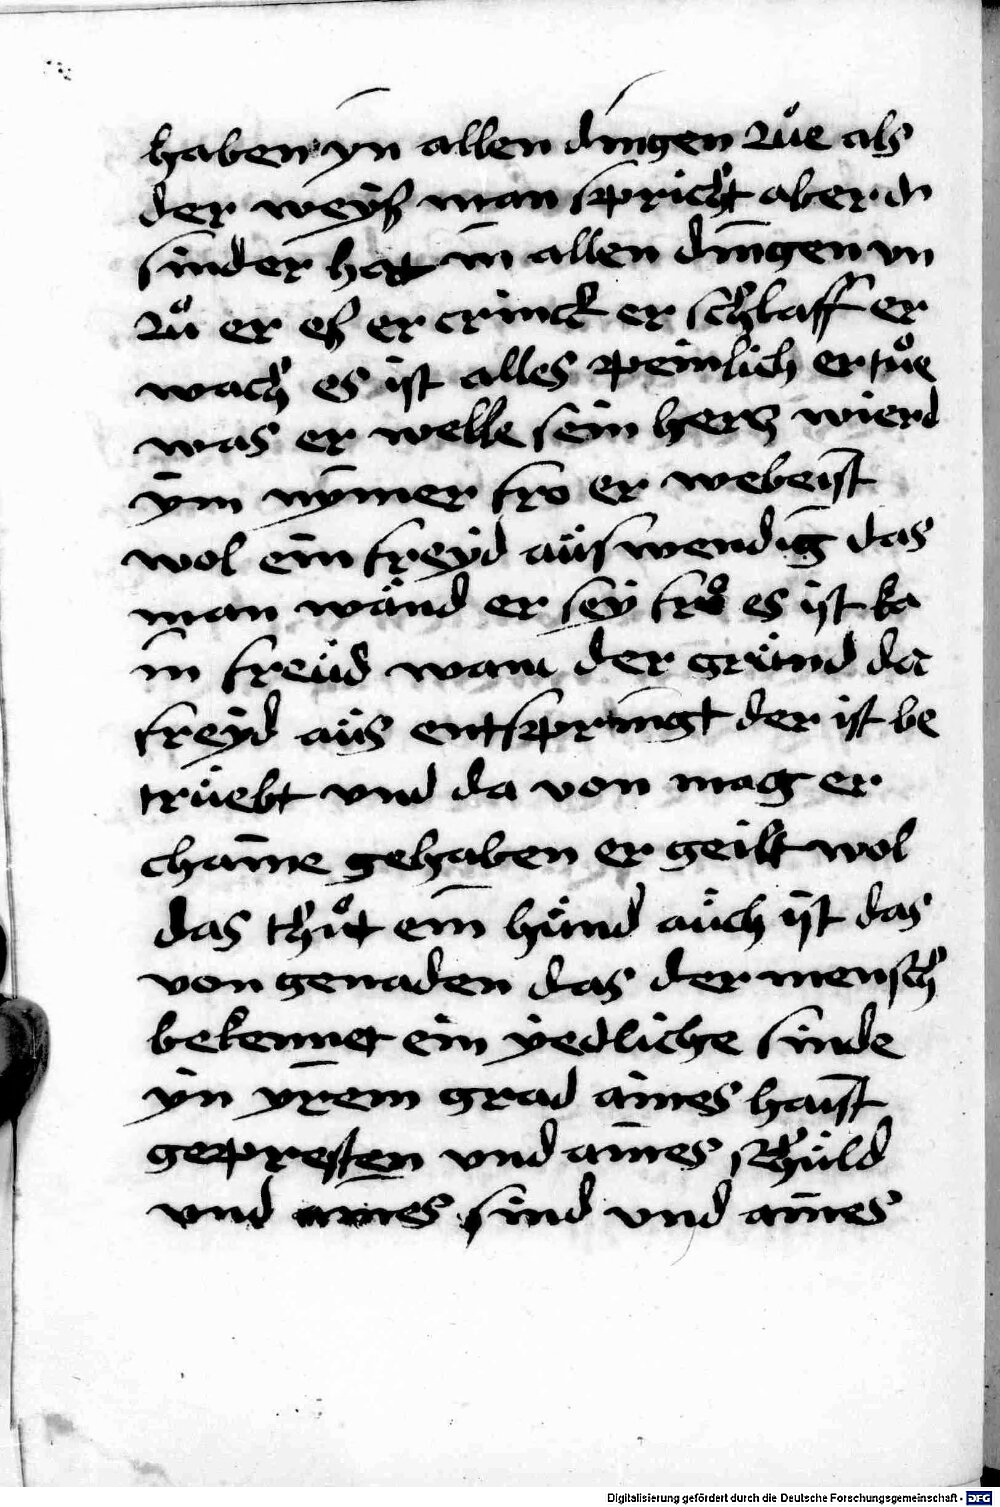 haben yn allen dingen Růe als
der weyß man spricht aber d
sinder hat in allen dingen vn
Rů er eß er trinck er schlaff er
wach es ist alles peinlich er tůe
was er welle sein hertz wierd
ym nymer fro er webeist
wol ein freyd auswendig das
man wänd er sey fro es ist ka
in freüd wann der gründ da
freyd aüs entspringt der ist be
trüebt vnd da von mag er
chaine gehaben er geilt wol
das thůt ein hünd aüch ist das
von genaden das der mensch
bekennet ein yedliche sinde
yn yrem grad aines haist
gepresten vnd aines schüld
vnd aines sind vnd aines
Digitalisierung gefördert durch die Deutsche Forschungsgemeinschaft - DFG